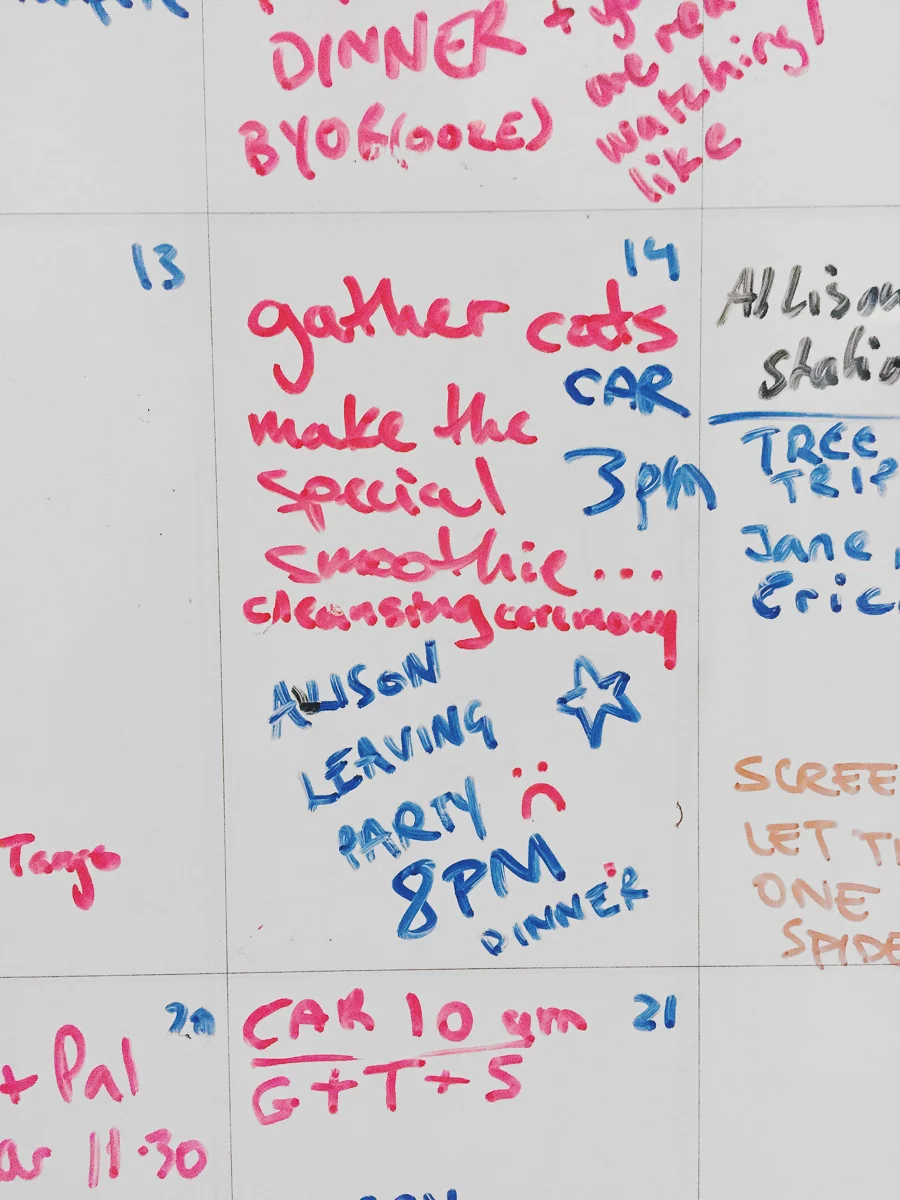 DINNER +
BYOB(OOZE)
we
watching
like
13
14
gather cats
CAR
make the
3pm
special
smoothie...
cleansing ceremony
ALISON
LEAVING
PARTY
8PM
DINNER
Tango
Allison
Statio
TREE
TRIP
Jane,
Eric
SCREE
LET T
ONE
SPIDE
20
+ Pal
ar 11.30
CAR 10 am
21
G+T+S